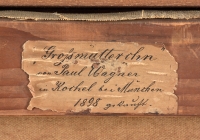 "Großmütterchen"
von Paul Wagner
in Kochel bei München
1898 gekauft.